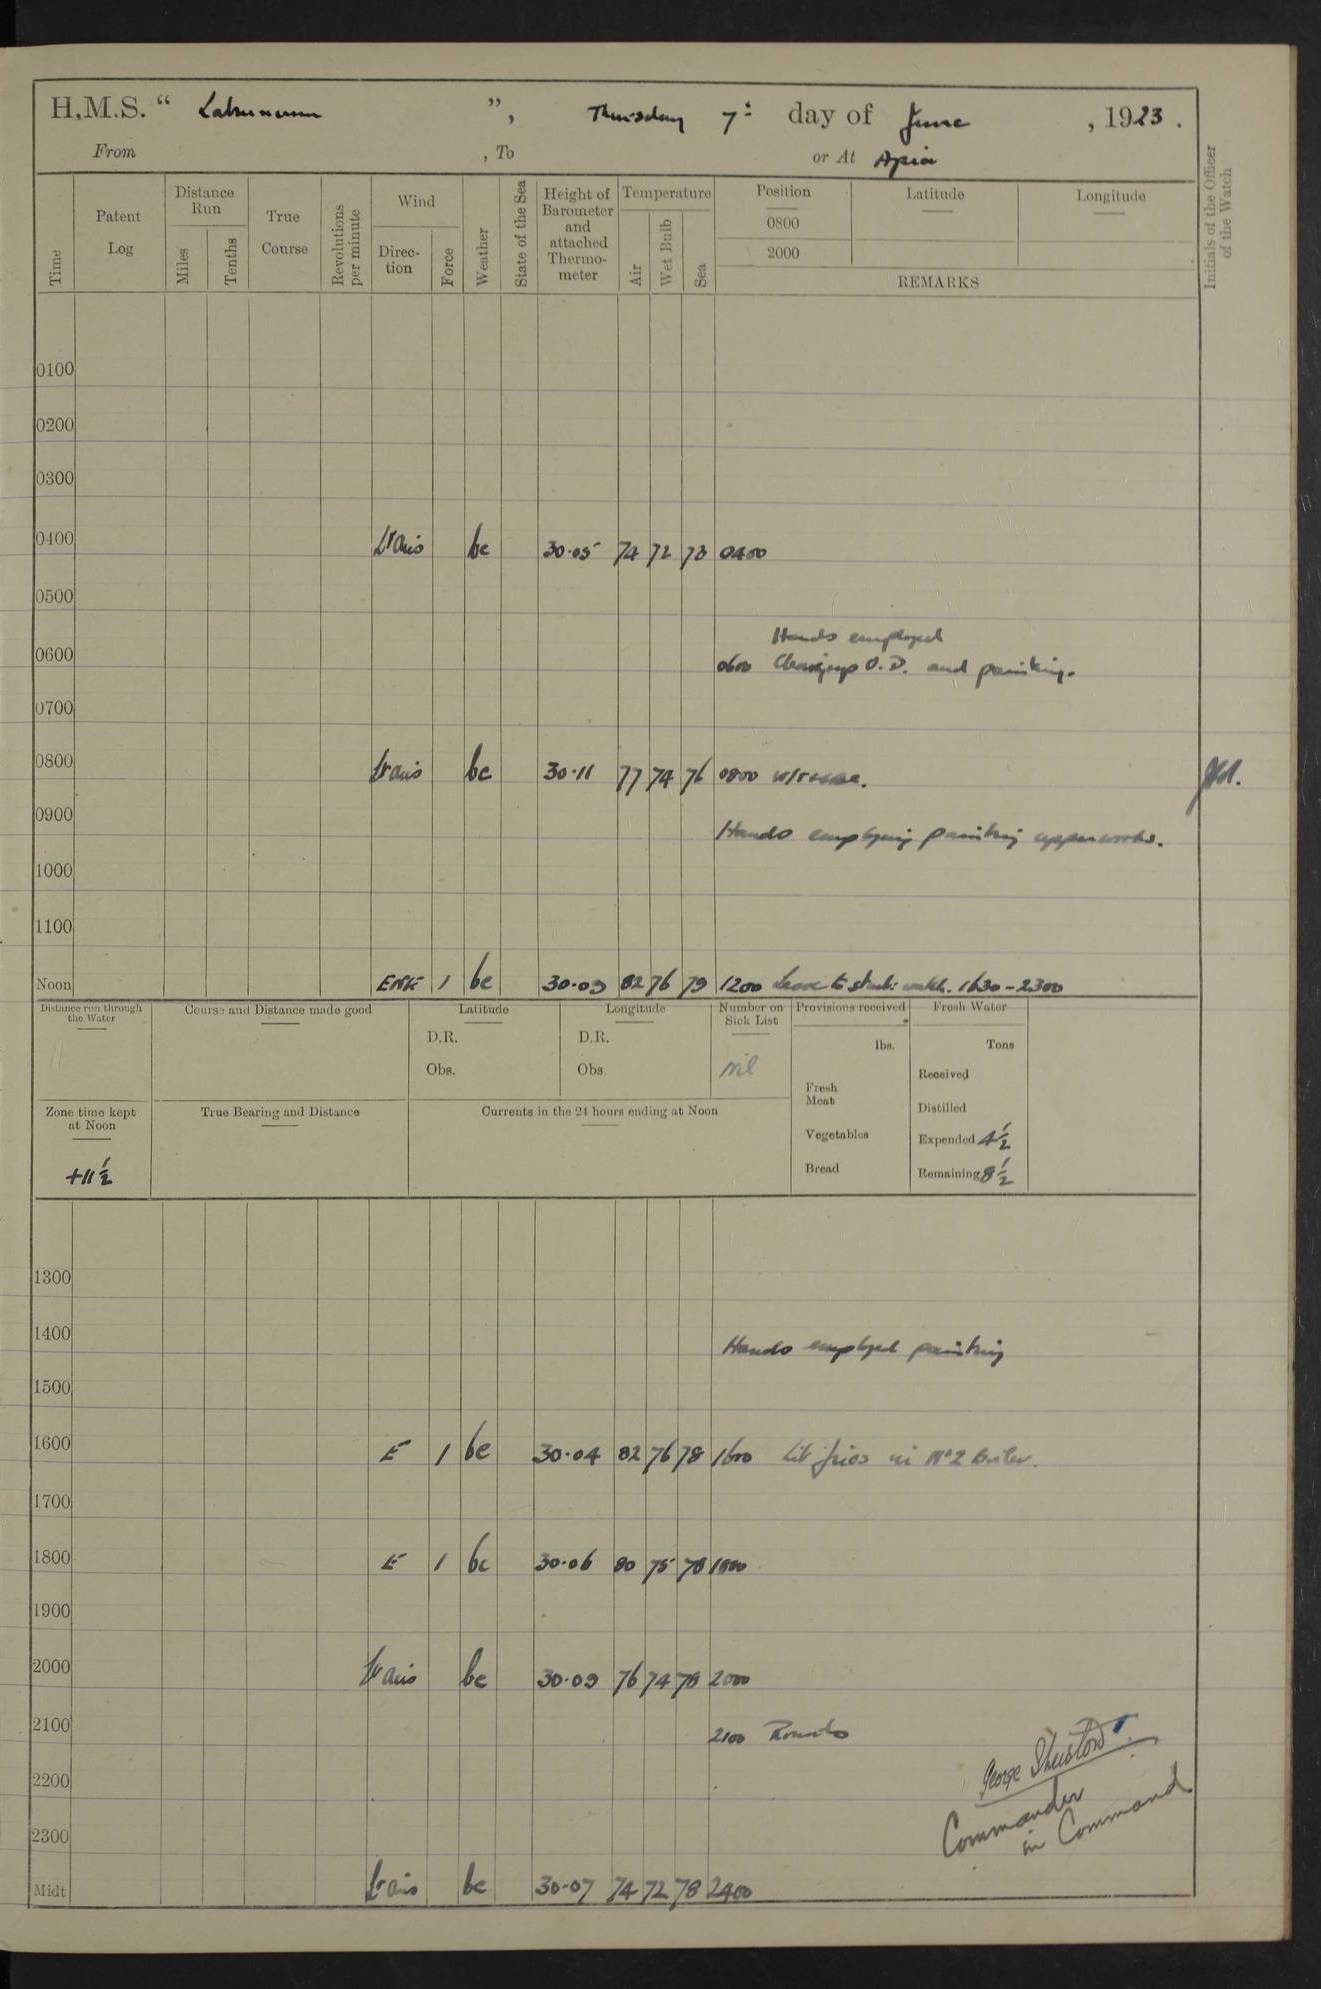 H.M.S. “ Laburnum ”, Thursday 7th day of June , 1923 .
From , To or At Apia
Time
Patent Log
Distance Run
Miles
Tenths
True Course
Revolutions per minute
Wind
Direction
Force
Weather
State of the Sea
Height of Barometer and attached Thermometer
Temperature
Air
Wet Bulb
Sea
Position
0800
2000
Latitude
Longitude
REMARKS
Initials of the Officer of the Watch
0100
0200
0300
0400 Lt airs bc 30.05 74 72 73 0400
0500
Hands employed
0600 0600 O.D. and painting.
0700
0800 Lt airs bc 30.11 77 74 76 0800
0900 Hands employing painting upperworks.
1000
1100
Noon ENE 1 bc 30.09 82 76 79 1200 Leave to starb: watch. 1630-2300
Distance run through the Water
Course and Distance made good
Latitude
D.R.
Obs.
Longitude
D.R.
Obs.
Number on Sick List
Nil
Provisions received
lbs.
Fresh Meat
Vegetables
Bread
Fresh Water
Tons
Received
Distilled
Expended 4½
Remaining 8½
Zone time kept at Noon
+11½
True Bearing and Distance
Currents in the 24 hours ending at Noon
1300
1400 Hands employed painting
1500
1600 E 1 bc 30.04 82 76 78 1600 Lit fires in No 2 Boiler.
1700
1800 E 1 bc 30.06 80 75 78 1800
1900
2000 Lt airs bc 30.09 76 74 78 2000
2100 2100 Rounds
2200
George
Commander
in Command
2300
Midt Lt airs bc 30.07 74 72 78 2400